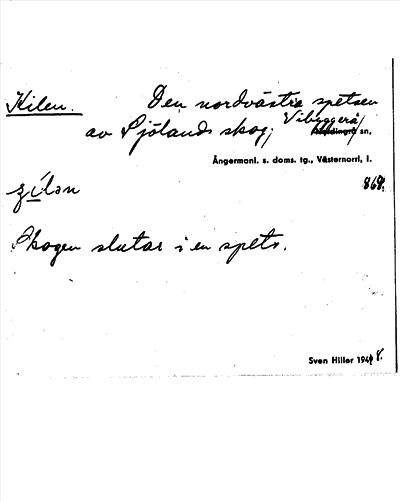 Kilen. Den nordvästra spetsen
av Sjölands skog; Vibyggerå sn,
Ångermanl. s. doms. tg., Västernorrl. l.
868.
Skogen slutar i en spets.
Sven Hiller 1948.